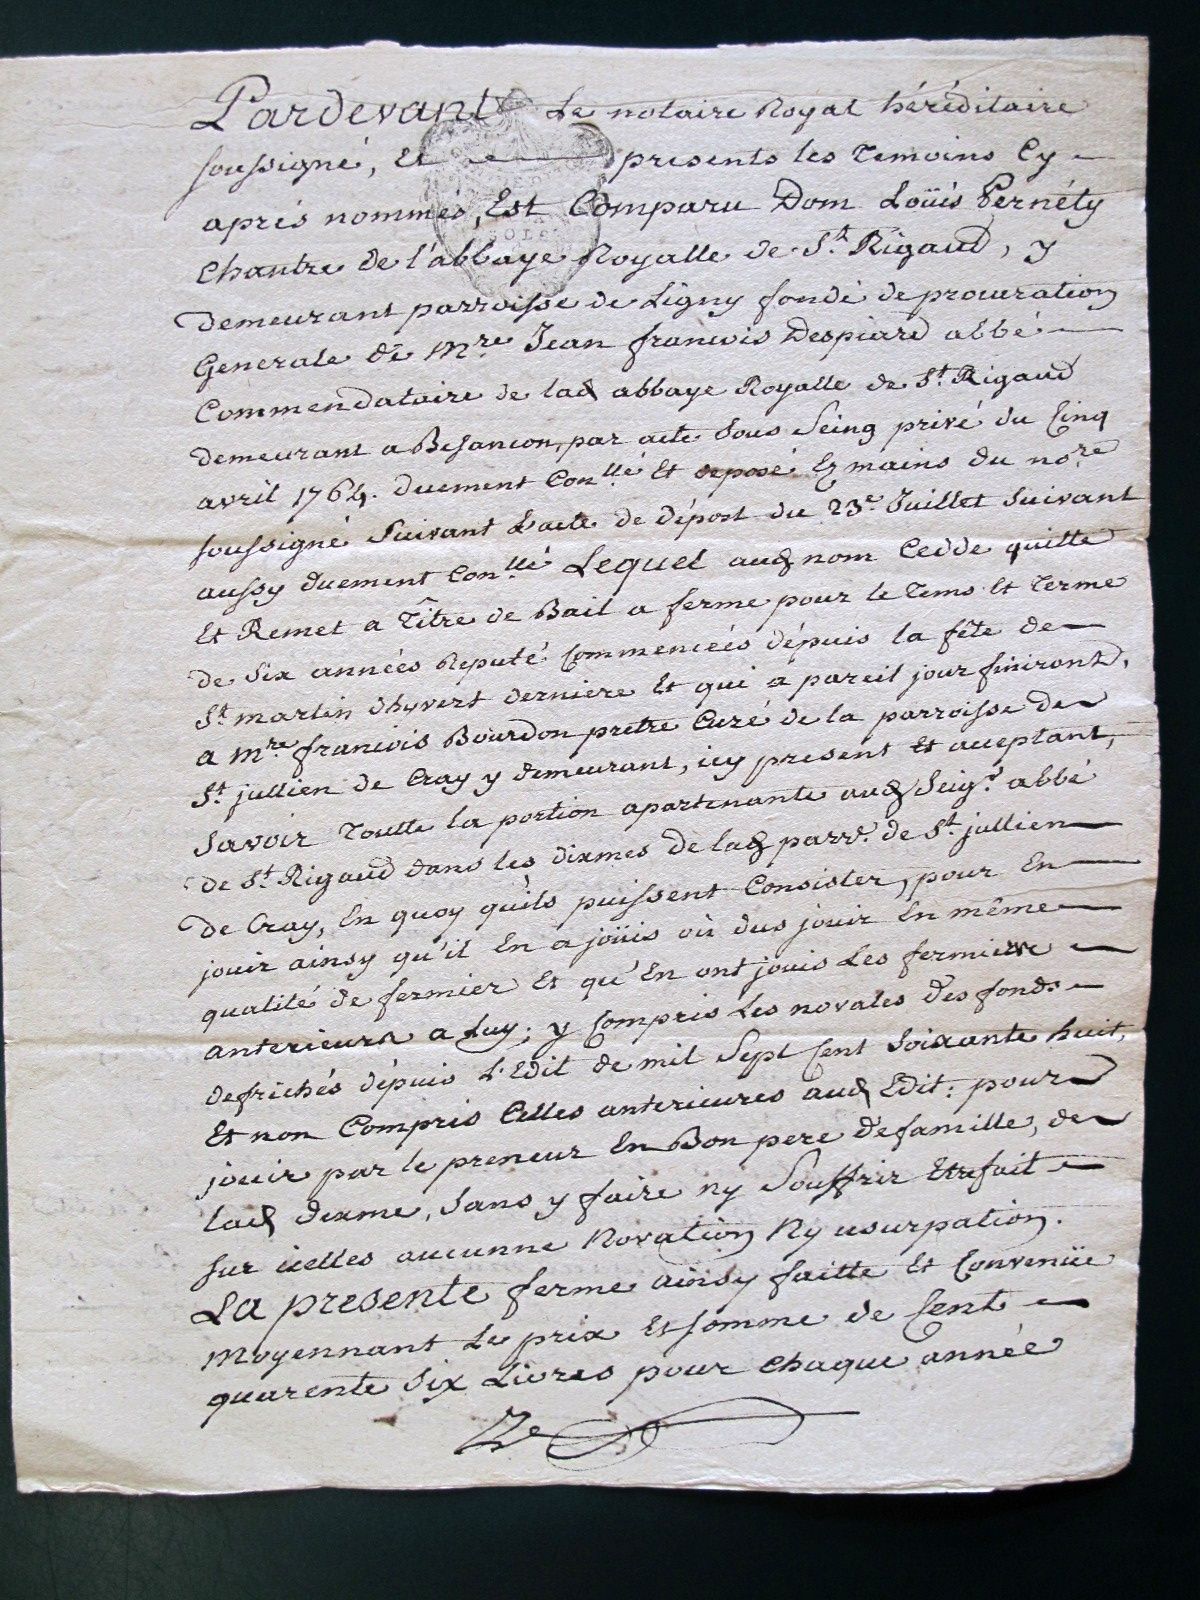 Pardevant Le notaire Royal héréditaire
soussigné, Et presents les Temoins Cy
aprés nommés, Est Comparu Dom Loüis Pernéty
Chantre de l'abbaye Royalle de St. Rigaud, y
demeurant parroisse de Ligny fondé de procuration
Generale de Mre. Jean francois Despiard abbé
Commendataire de lad abbaye Royalle de St. Rigaud
demeurant a Besancon, par acte sous Seing privé du Cinq
avril 1764. duement Con.llé Et deposé Ez mains du no.re
soussigné Suivant L'acte de dépost du 23e. Juillet Suivant
aussy duement Con.llé Lequel aud nom Cedde quitte
Et Remet a Titre de Bail a ferme pour le Tems Et Terme
de Six années Reputé Commenceés dépuis la fête de
St. martin d'hyvert derniere Et qui a pareil jour finiront,
a Mre francois Bourdon pretre Curé de la parroisse de
St. jullien de Cray y demeurant, icy present Et acceptant,
Savoir Toutte la portion apartenante aud Seigr. abbé
de St. Rigaud dans les dixmes de lad parr.e de St. jullien
de Cray, En quoy qu'ils puissent Consister, pour En
jouir ainsy qu'il En a joüis où dus jouir En même
qualité de fermier Et qu'En ont jouis Les fermiers
anterieurs a Luy; y Compris Les novales des fonds
defrichés dépuis L'Edit de mil Sept Cent Soixante huit,
Et non Compris Celles anterieures aud Edit: pour
jouir par le preneur En Bon pere de famille, de
lad dixme, Sans y faire ny Souffrir Etre fait
sur icelles aucunne Novation Ny usurpation.
La presente ferme ainsy faitte Et Convenüe
Moyennant Le prix Et somme de Cent
quarente Six Livres pour Chaque année